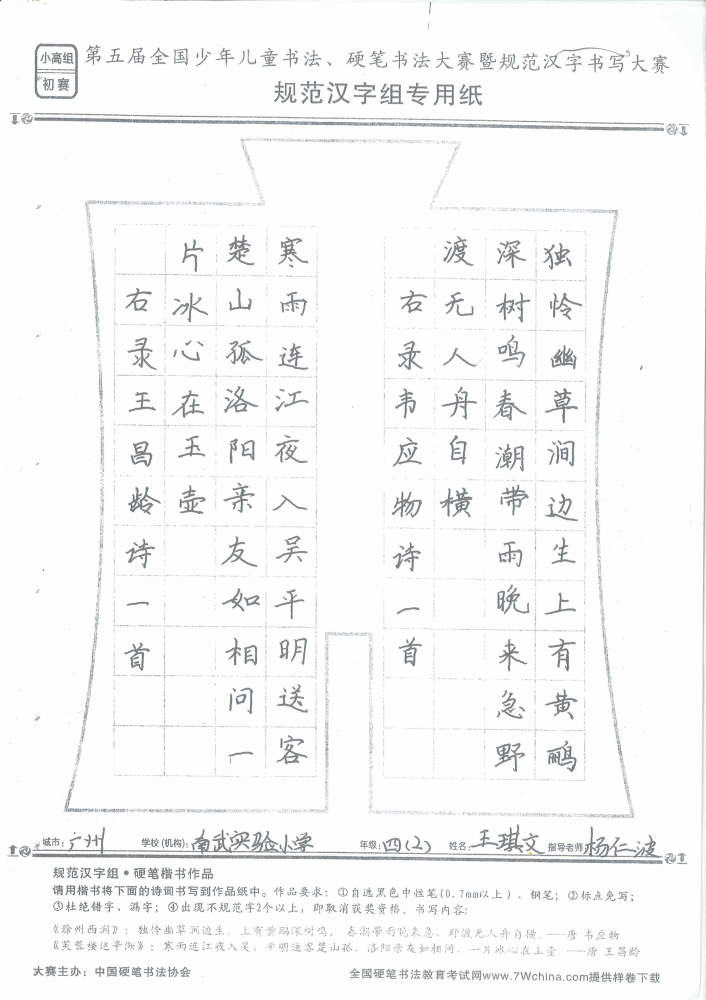 小高组
初赛
第五届全国少年儿童书法、硬笔书法大赛暨规范汉字书写大赛
规范汉字组专用纸
独怜幽草涧边生上有黄鹂
深树鸣春潮带雨晚来急野
渡无人舟自横
右录韦应物诗一首
寒雨连江夜入吴平明送客
楚山孤洛阳亲友如相问一
片冰心在玉壶
右录王昌龄诗一首
城市: 广州 学校(机构): 南武实验小学 年级: 四(2) 姓名: 王琪文 指导老师 杨仁波
规范汉字组·硬笔楷书作品
请用楷书将下面的诗词书写到作品纸中。作品要求：①自选黑色中性笔(0.7mm以上)、钢笔；②标点免写；
③杜绝错字、漏字；④出现不规范字2个以上，即取消获奖资格。书写内容:
《滁州西涧》：独怜幽草涧边生，上有黄鹂深树鸣。 春潮带雨晚来急，野渡无人舟自横。——唐 韦应物
《芙蓉楼送辛渐》：寒雨连江夜入吴，平明送客楚山孤。洛阳亲友如相问，一片冰心在玉壶。——唐 王昌龄
大赛主办：中国硬笔书法协会 全国硬笔书法教育考试网www.7Wchina.com提供样卷下载